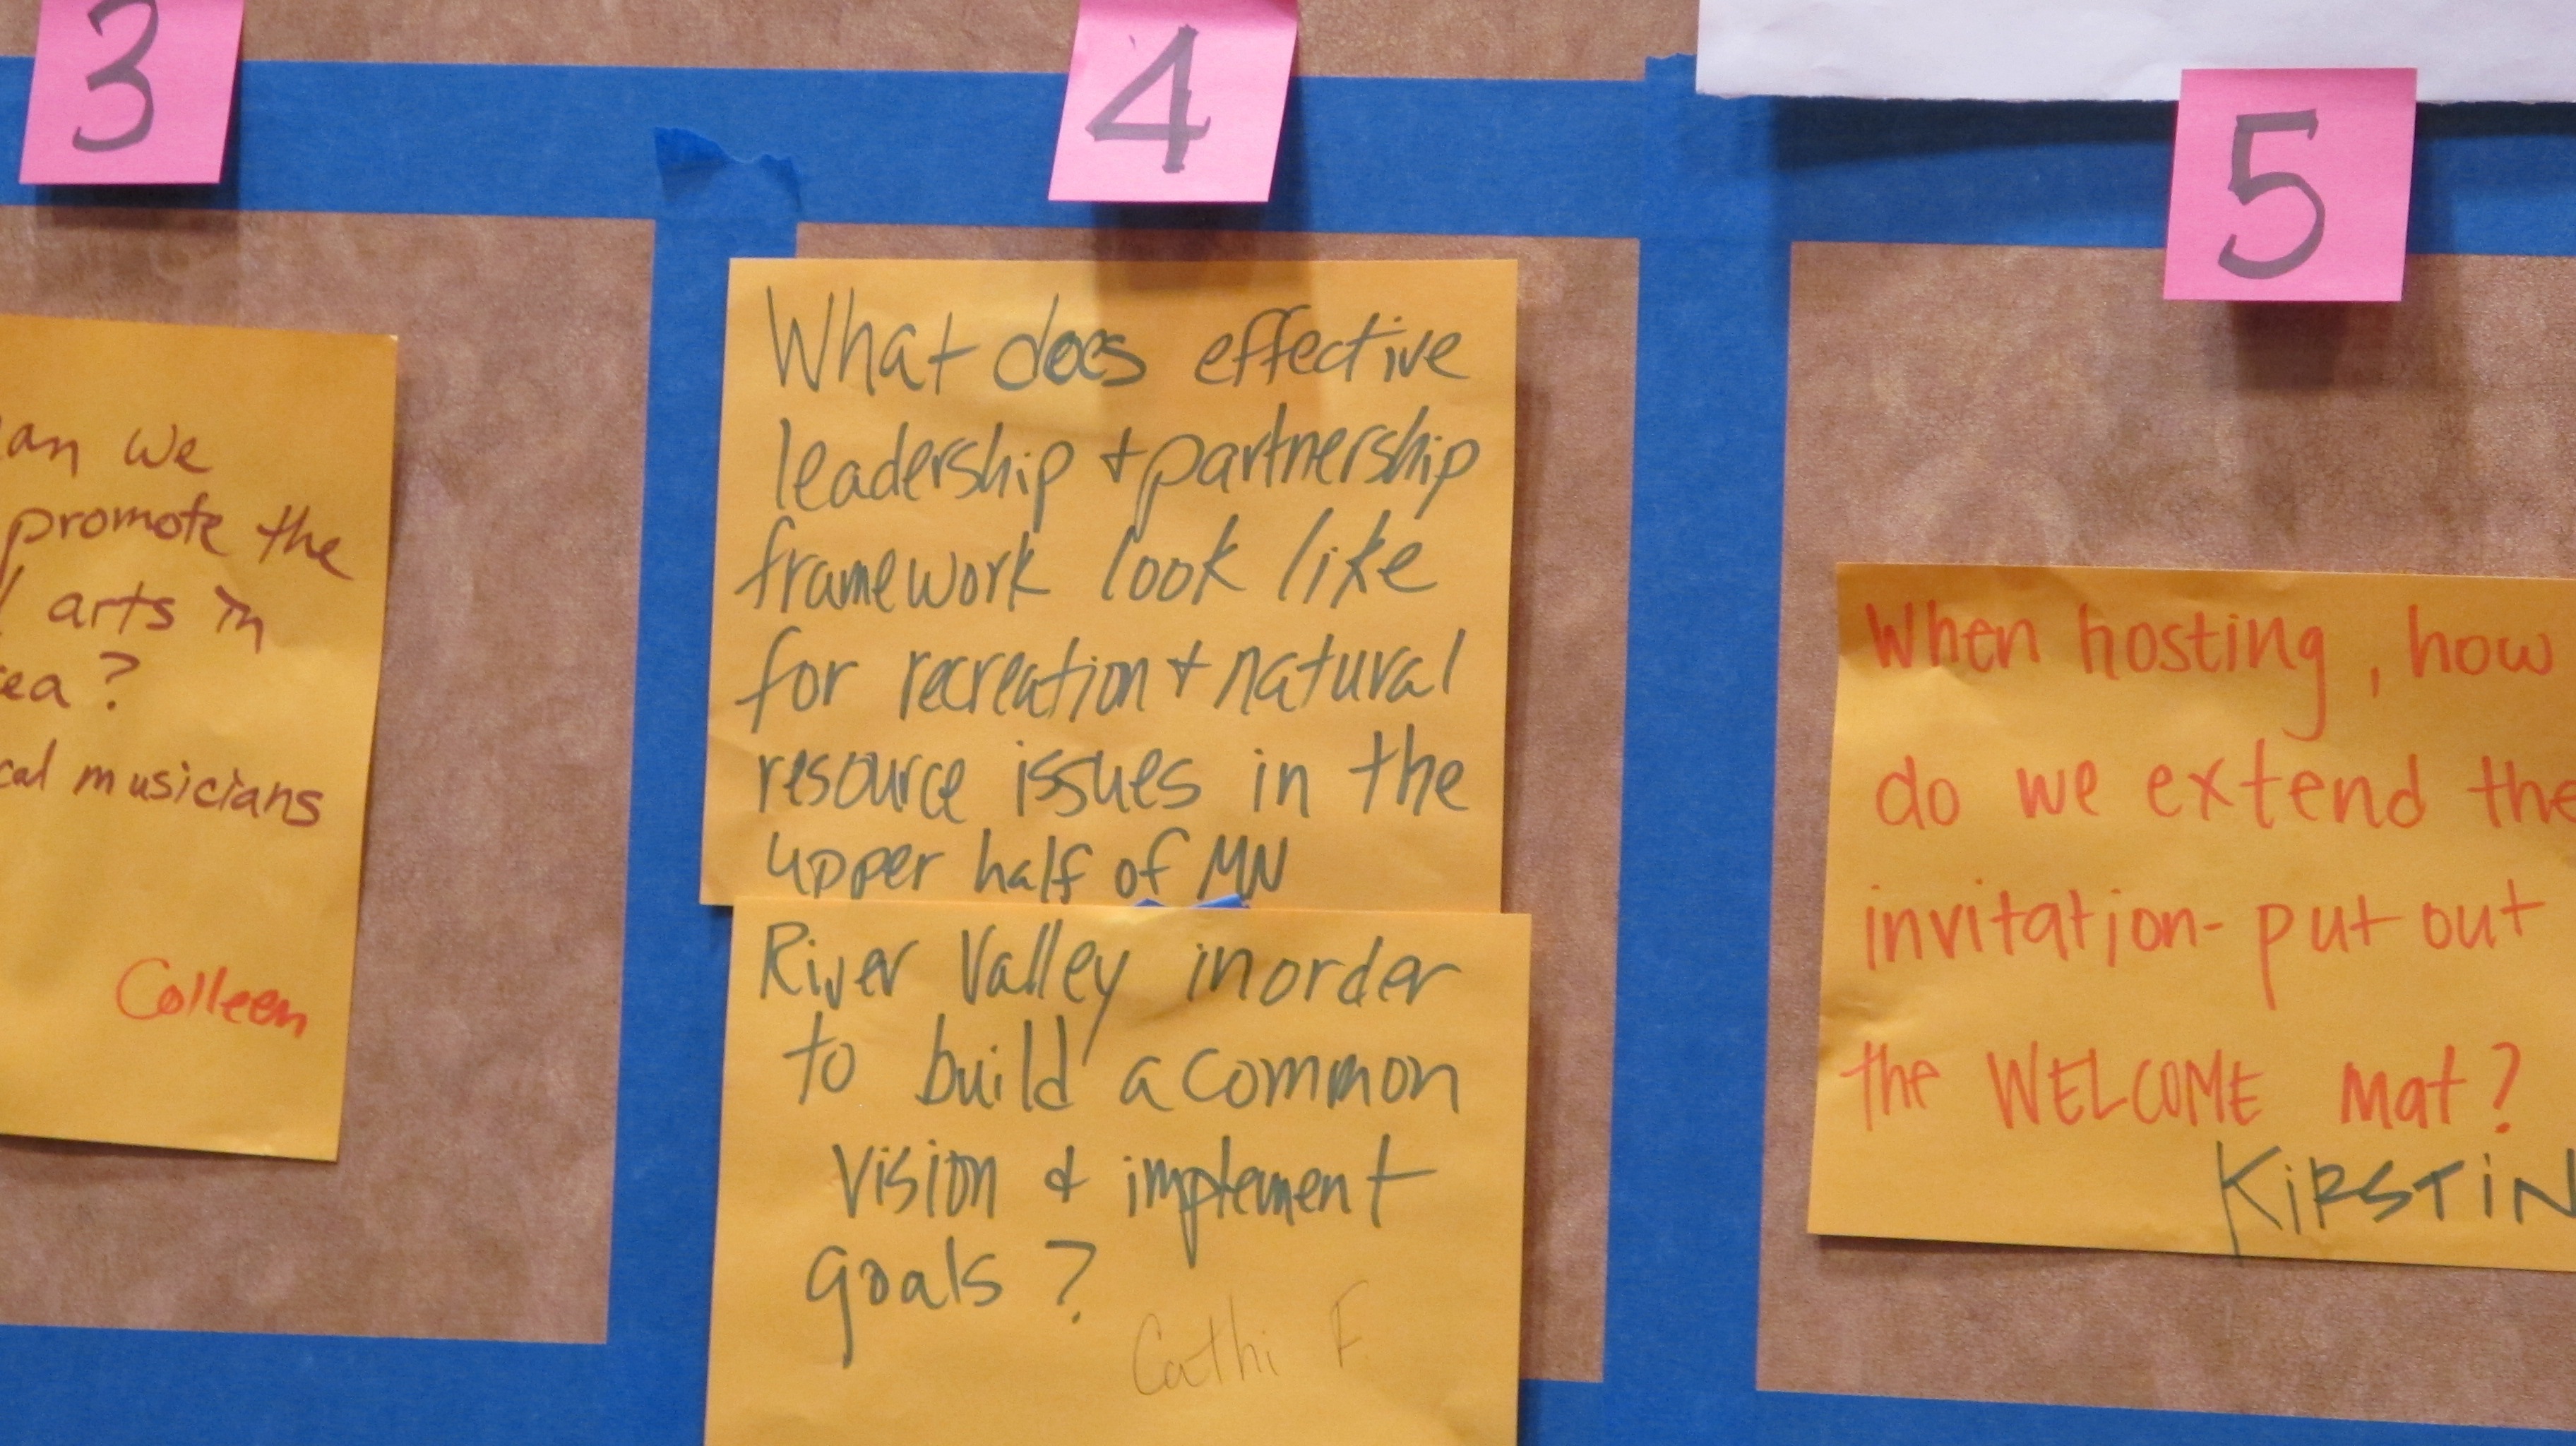 3
an we
promote the
arts in
ea?
cal musicians
Colleen
4
What does effective
leadership + partnership
framework look like
for recreation + natural
resource issues in the
upper half of MN
River Valley inorder
to build a common
vision & implement
goals?
Cathi F.
5
When hosting, how
do we extend the
invitation - put out
the WELCOME mat?
KiRSTiN